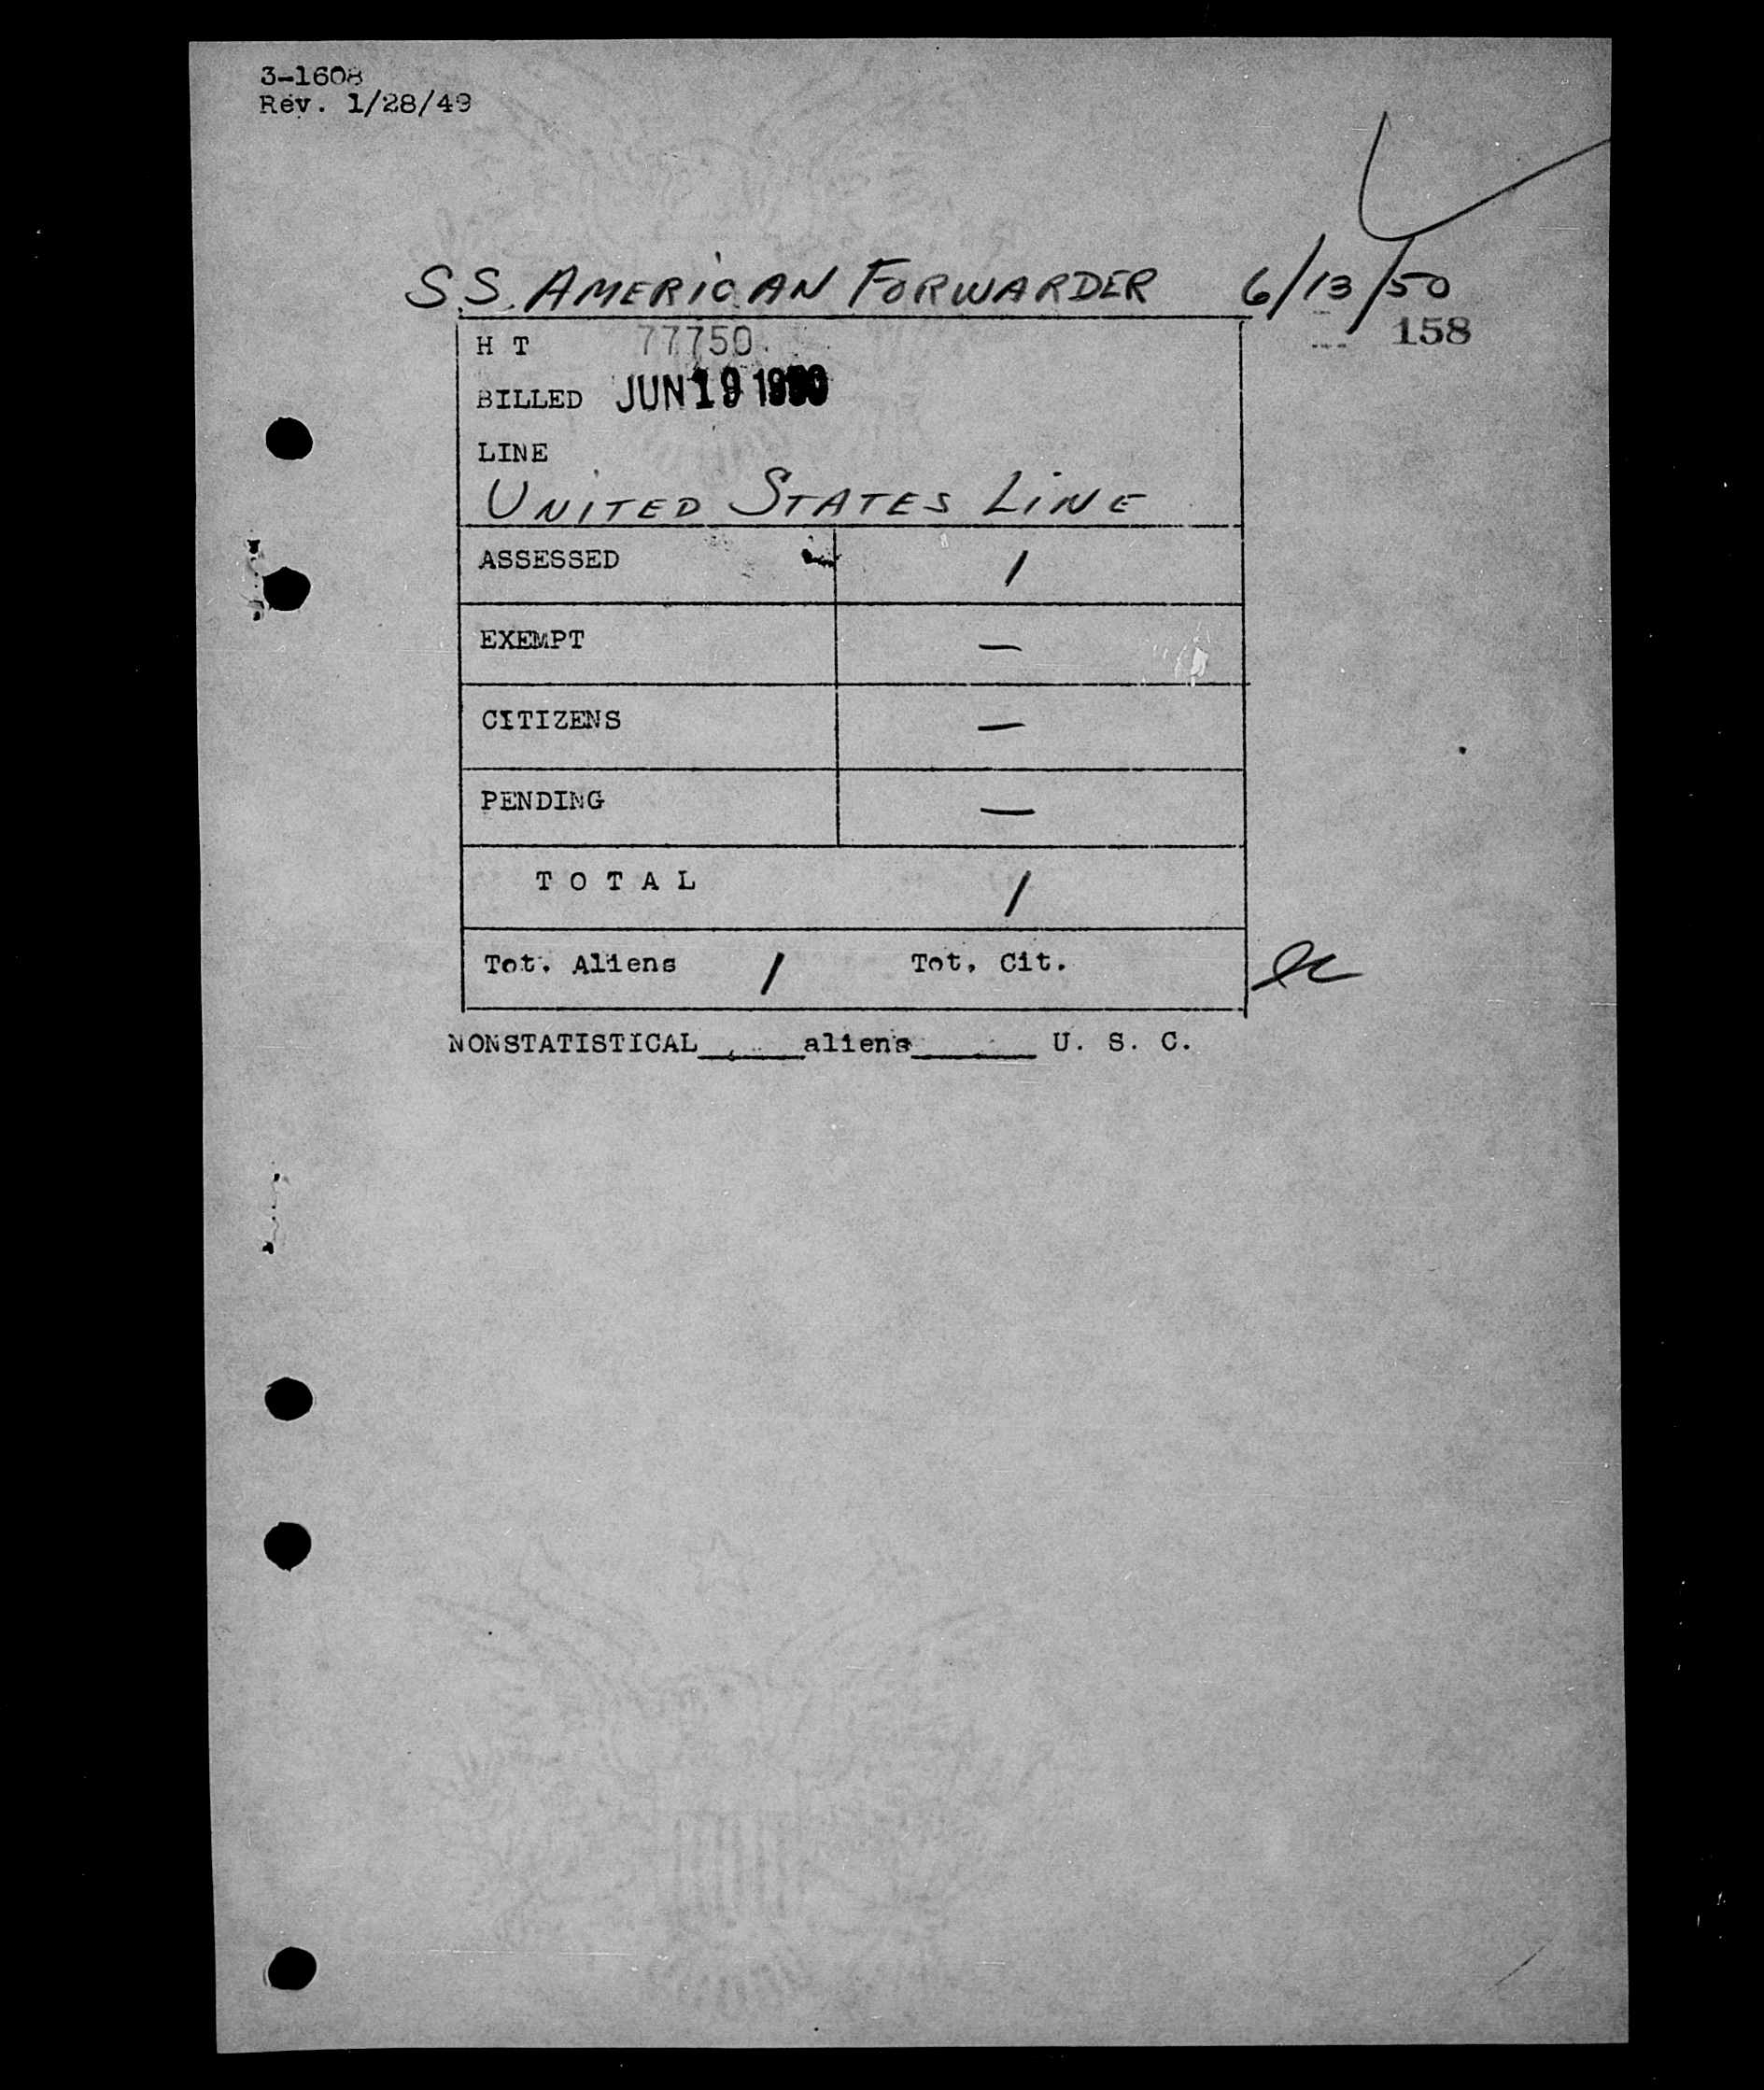 3-1608
Rev. 1/28/49
S.S. AMERICAN FORWARDER 6/13/50
158
H T 77750
BILLED JUN 19 1950
LINE
UNITED STATES LINE
ASSESSED 1
EXEMPT —
CITIZENS —
PENDING —
T O T A L 1
Tot. Aliens 1 Tot. Cit.
NONSTATISTICAL______aliens______ U. S. C.